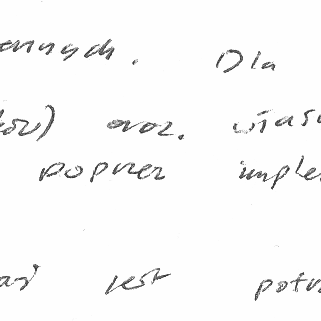 annych. Dla
ków) oraz. własn
poprzez imple
jest potrz